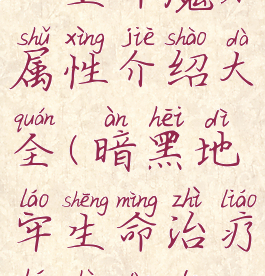 shǔ xìng jiè shào dà
属性介绍大
quán àn hēi dì
全(暗黑地
láo shēng mìng zhì liáo
牢生命治疗